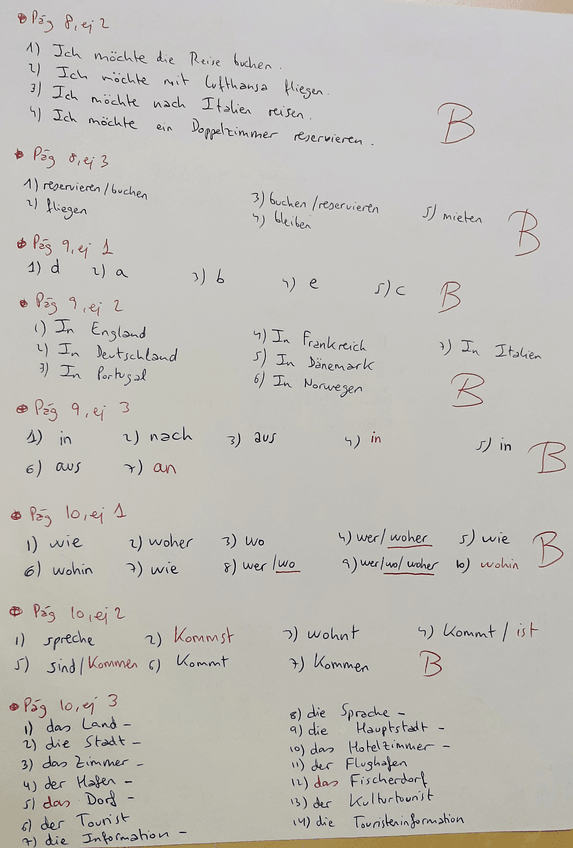 Pág 8, ej 2
1) Ich möchte die Reise buchen.
2) Ich möchte mit Lufthansa fliegen.
3) Ich möchte nach Italien reisen.
4) Ich möchte ein Doppelzimmer reservieren.
B
Pág 8, ej 3
1) reservieren/buchen 3) buchen/reservieren 5) mieten
2) fliegen 4) bleiben
B
Pág 9, ej 1
1) d 2) a 3) b 4) e 5) c B
Pág 9, ej 2
1) In England 4) In Frankreich 7) In Italien
2) In Deutschland 5) In Dänemark
3) In Portugal 6) In Norwegen
B
Pág 9, ej 3
1) in 2) nach 3) aus 4) in 5) in
6) aus 7) an
B
Pág 10, ej 1
1) wie 2) woher 3) wo 4) wer/woher 5) wie
6) wohin 7) wie 8) wer/wo 9) wer/wo/woher 10) wohin
B
Pág 10, ej 2
1) spreche 2) Kommst 3) wohnt 4) Kommt / ist
5) sind/Kommen 6) Kommt 7) Kommen B
Pág 10, ej 3
1) das Land -
2) die Stadt -
3) das Zimmer -
4) der Hafen -
5) das Dorf -
6) der Tourist
7) die Information -
8) die Sprache -
9) die Hauptstadt -
10) das Hotelzimmer -
11) der Flughafen
12) das Fischerdorf
13) der Kulturtourist
14) die Touristeninformation